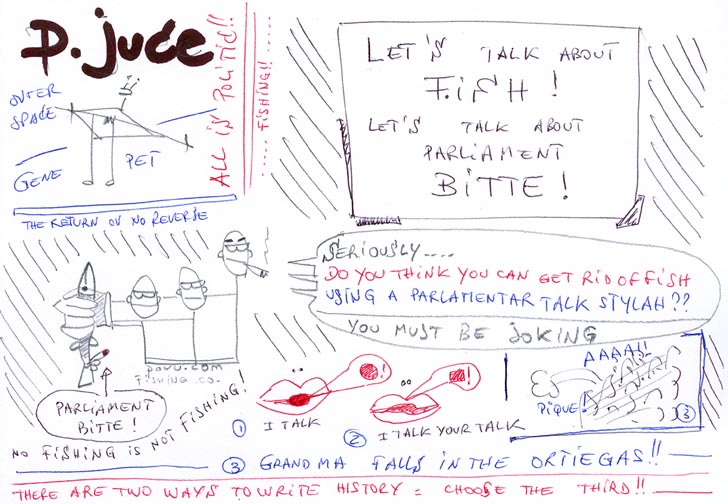 P. juce
ALL IS POLITIC!!
.....FISHING!!......
OUTER
SPACE
Hi!
GENE
PET
THE RETURN OV NO REVERSE
LET'S TALK ABOUT
FISH!
LET'S TALK ABOUT
PARLIAMENT
BITTE!
SERIOUSLY....
DO YOU THINK YOU CAN GET RID OF FISH
USING A PARLAMENTAR TALK STYLAH??
YOU MUST BE JOKING
POVU.COM
FISHING CO.
PARLIAMENT
BITTE!
NO FISHING IS NOT FISHING!
!
① I TALK
!
② I TALK YOUR TALK
AAAA!!
PIQUE!
③
③ GRANDMA FALLS IN THE ORTIEGAS!!
THERE ARE TWO WAYS TO WRITE HISTORY = CHOOSE THE THIRD!!